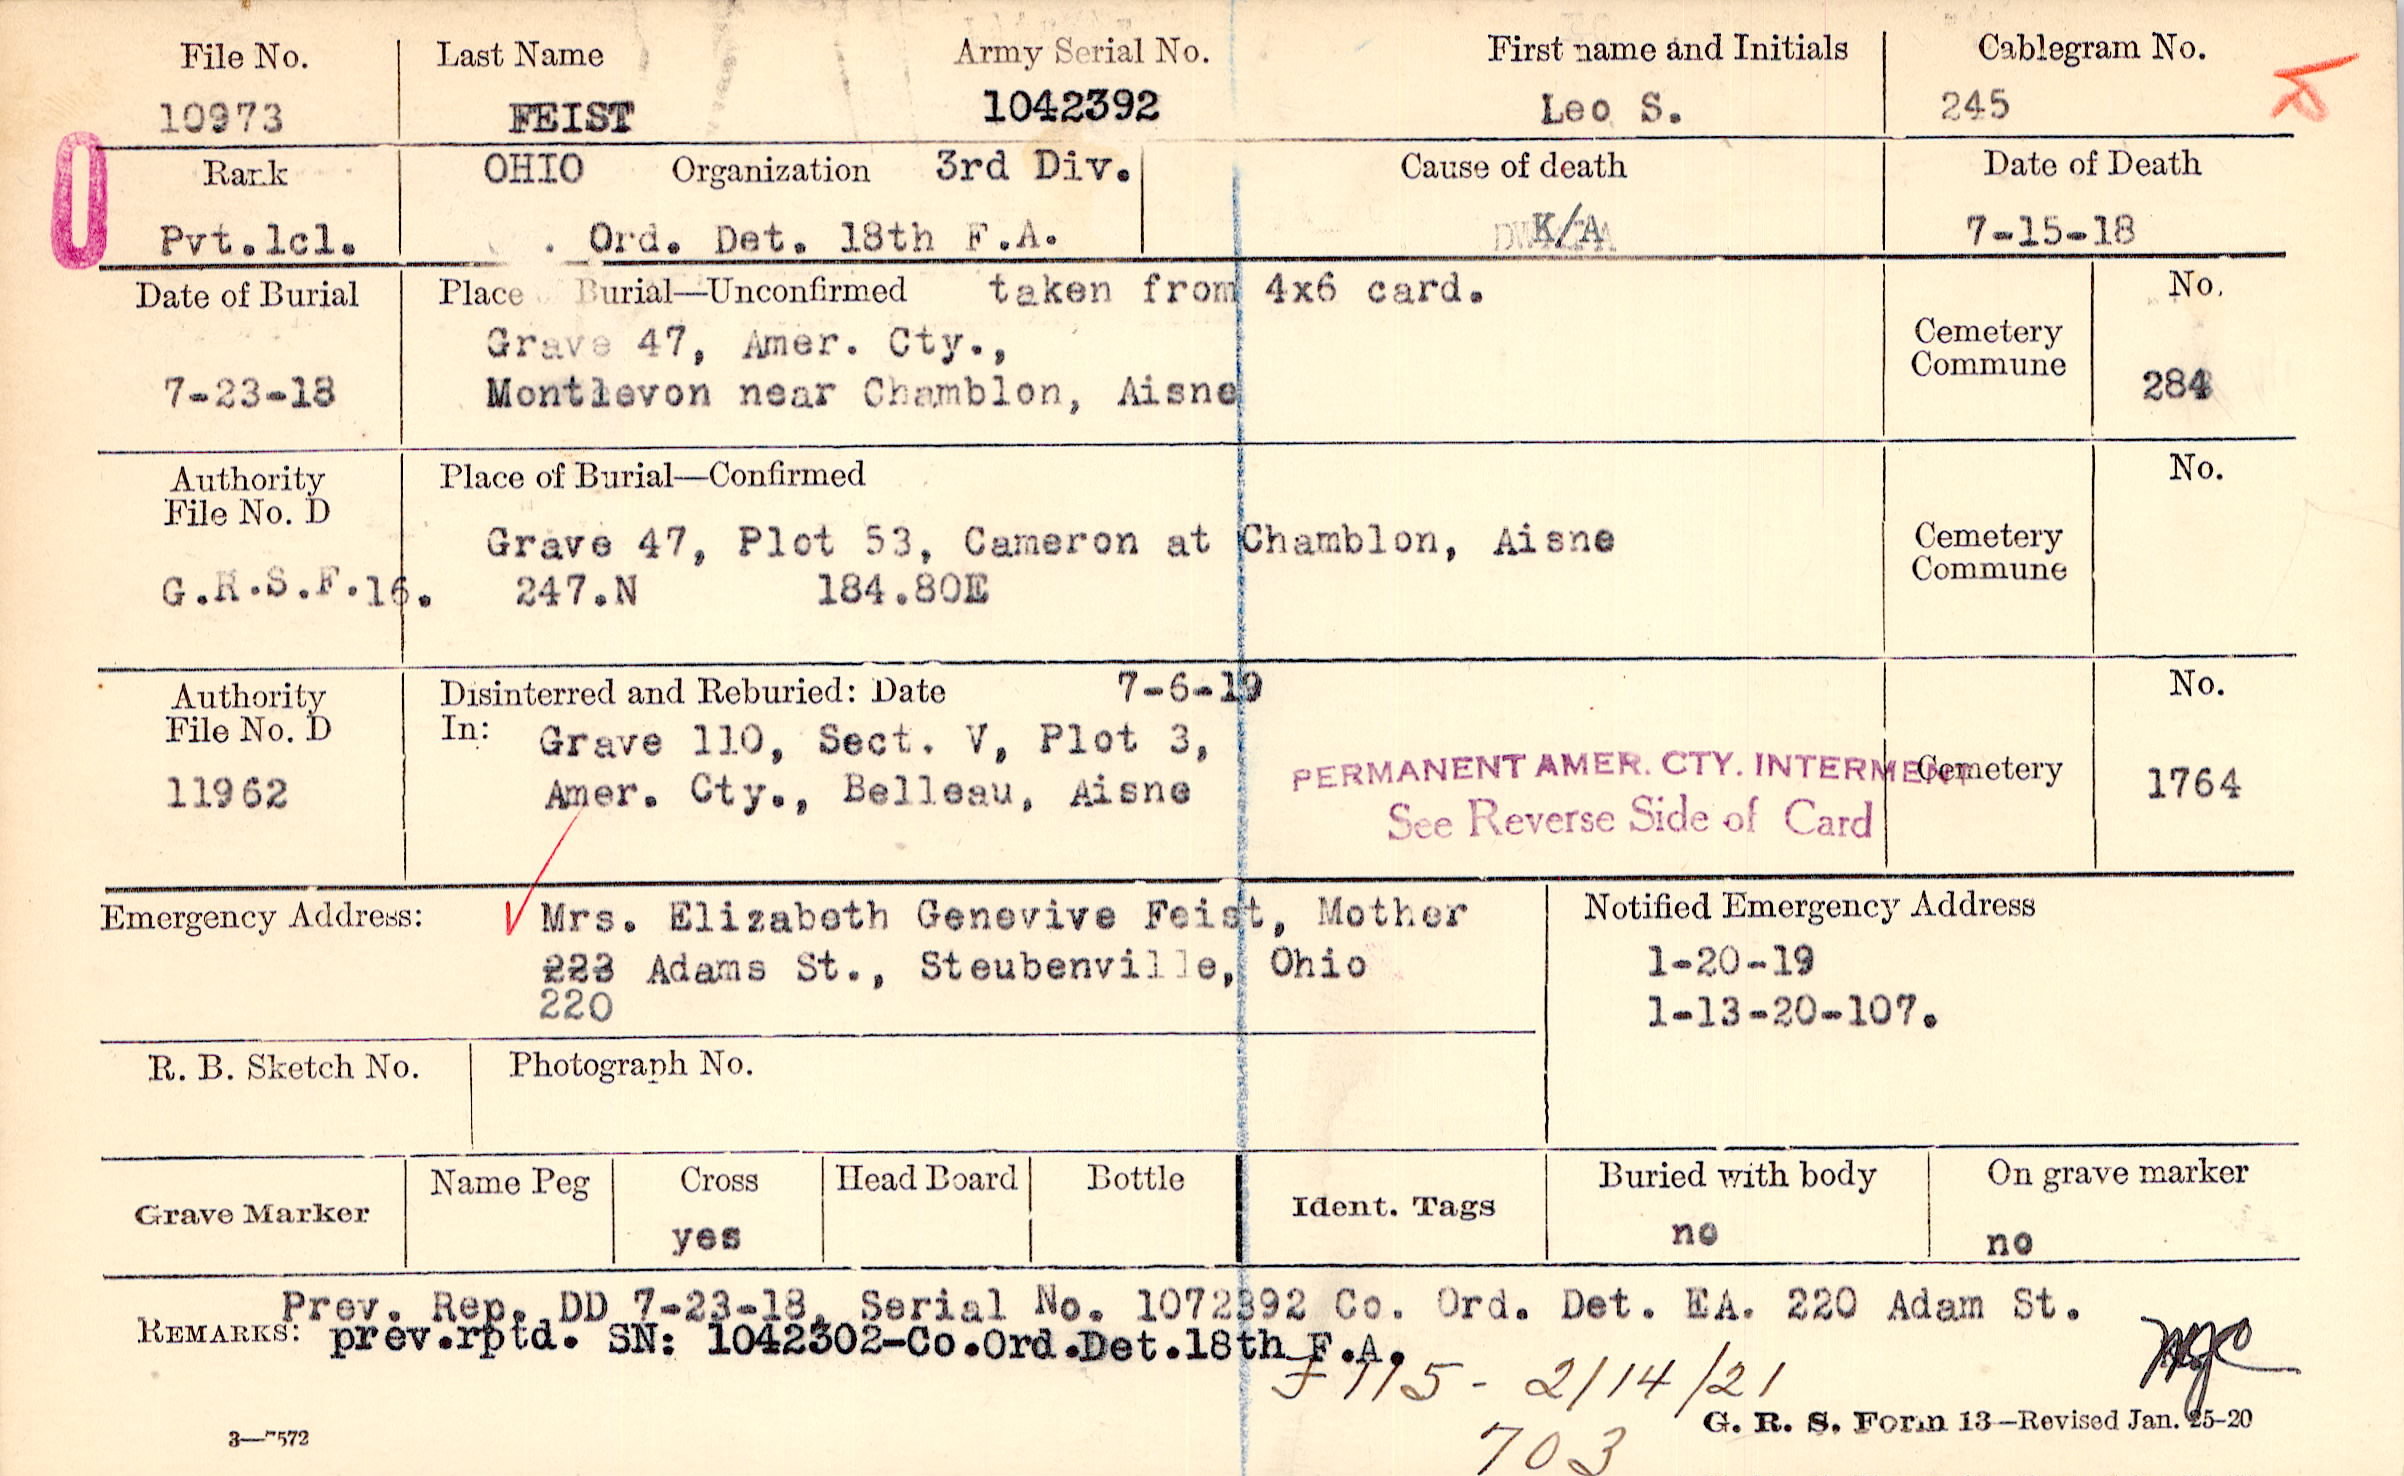 File No. Last Name Army Serial No. First name and Initials Cablegram No.
10973 FEIST 1042392 Leo S. 245
Rank OHIO Organization 3rd Div. Cause of death Date of Death
Pvt.1cl. . Ord. Det. 18th F.A. K/A 7-15-18
Date of Burial Place Burial—Unconfirmed taken from 4x6 card. No.
Grave 47, Amer. Cty., Cemetery
Commune
7-23-18 Montlevon near Chamblon, Aisne 284
Authority Place of Burial—Confirmed No.
File No. D
Grave 47, Plot 53, Cameron at Chamblon, Aisne Cemetery
Commune
G.R.S.F.16. 247.N 184.80E
Authority Disinterred and Reburied: Date 7-6-19 No.
File No. D In: Grave 110, Sect. V, Plot 3,
PERMANENT AMER. CTY. INTERMENT Cemetery
11962 Amer. Cty., Belleau, Aisne 1764
See Reverse Side of Card
Emergency Address: Mrs. Elizabeth Genevive Feist, Mother Notified Emergency Address
223 Adams St., Steubenville, Ohio 1-20-19
220 1-13-20-107.
R. B. Sketch No. Photograph No.
Grave Marker Name Peg Cross Head Board Bottle Ident. Tags Buried with body On grave marker
yes no no
Prev. Rep. DD 7-23-18, Serial No. 1072392 Co. Ord. Det. EA. 220 Adam St.
REMARKS: prev.rptd. SN: 1042302-Co.Ord.Det.18th F.A.
F 115 - 2/14/21
G. R. S. Form 13—Revised Jan. 25-20
703